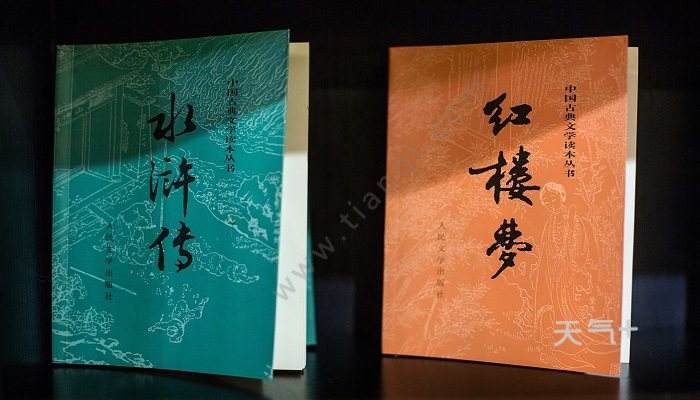 水浒传
中国古典文学读本丛书
人民文学出版社
红楼梦
中国古典文学读本丛书
人民文学出版社
天气+